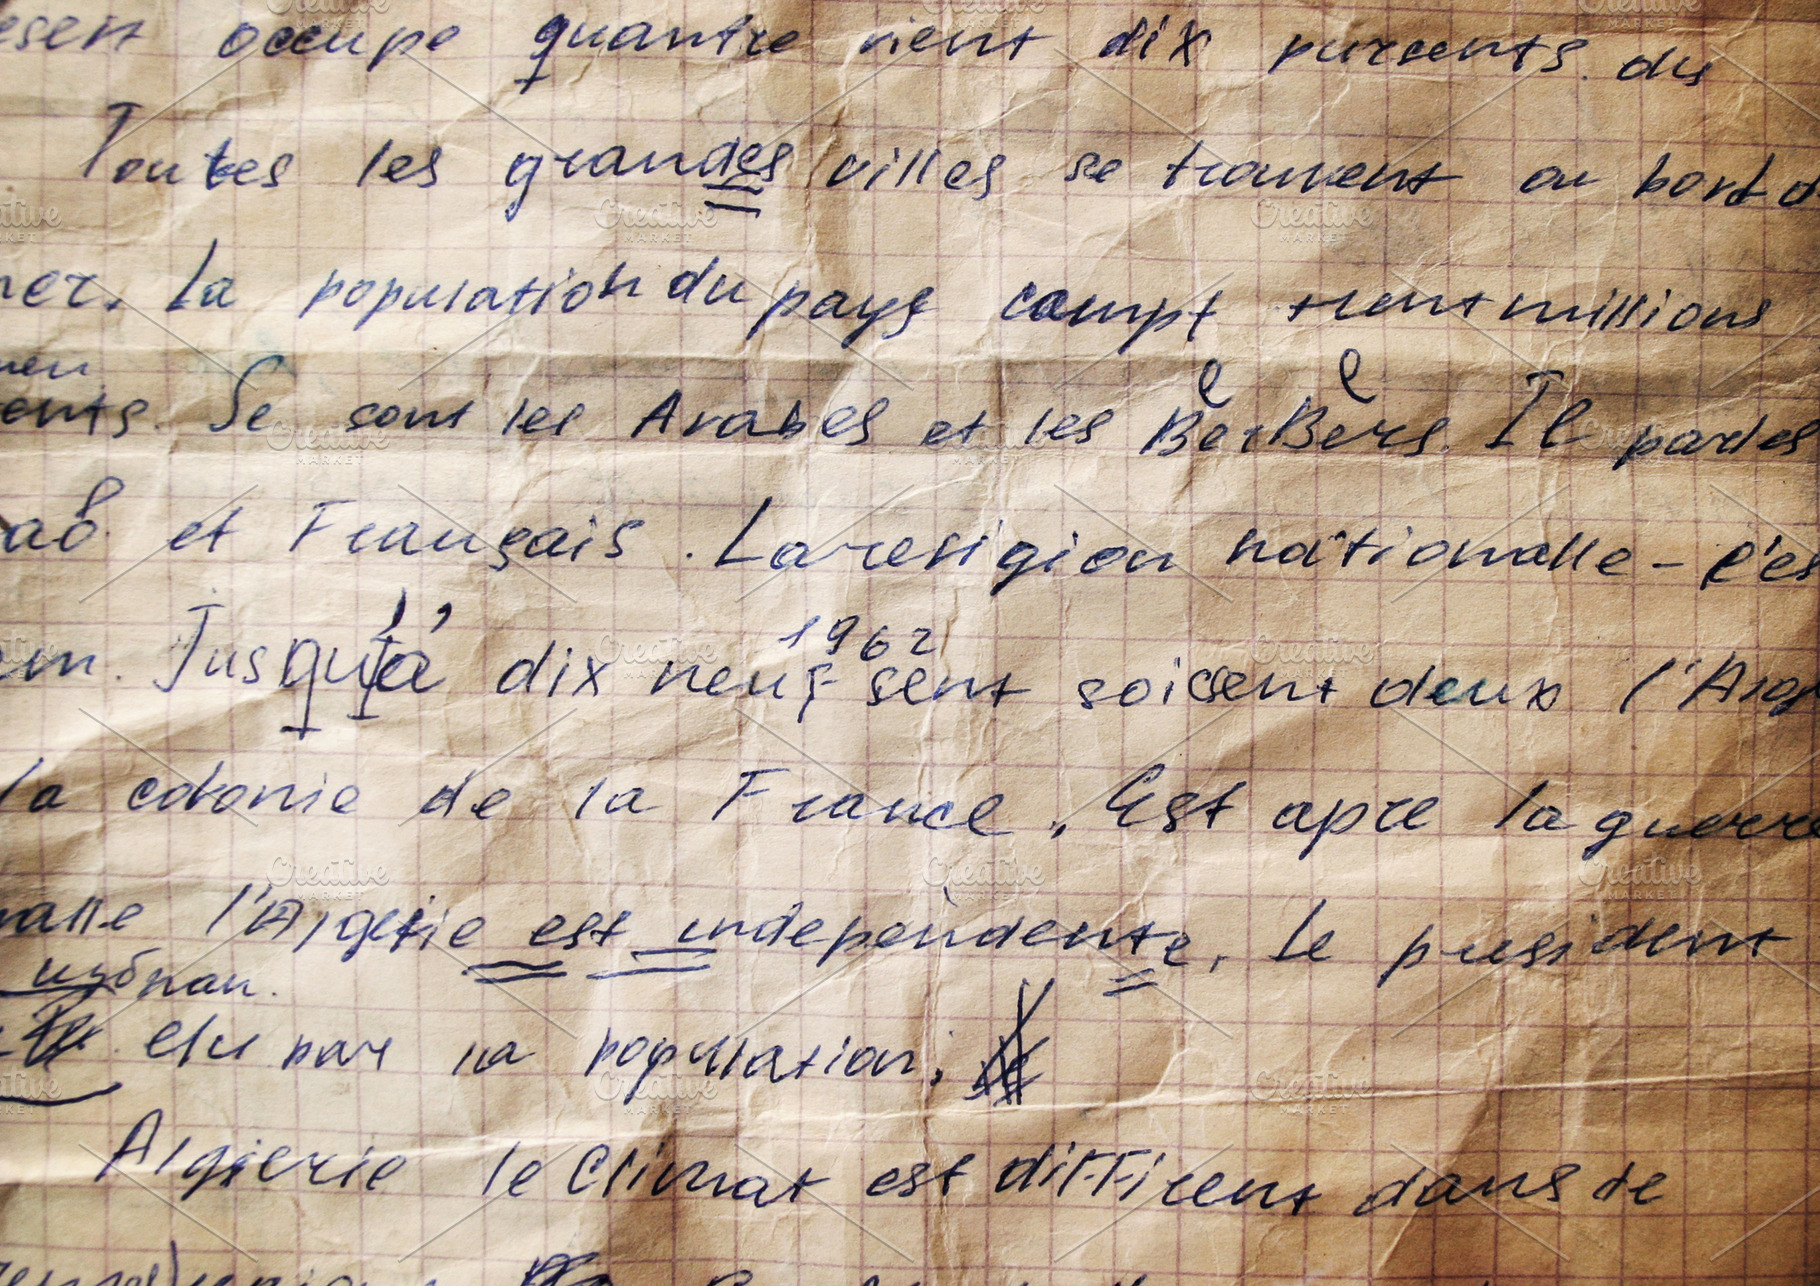 occupe quantre vient dix pursents du
Toutes les grandes villes se trouvent au bord d
mer. La population du pays compt trent millions
ents. Se sont les Arabes et les BerBers. Il parles
et Français. La resigion nationalle - c'es
1962
Jusqu'à dix neuf sent soissent deux l'Alg
la colonie de la France. C'est apre la guerre
nalle l'Algerie est independente. Le president
избран.
elu par la population.
Algierie le Climat est different dans le